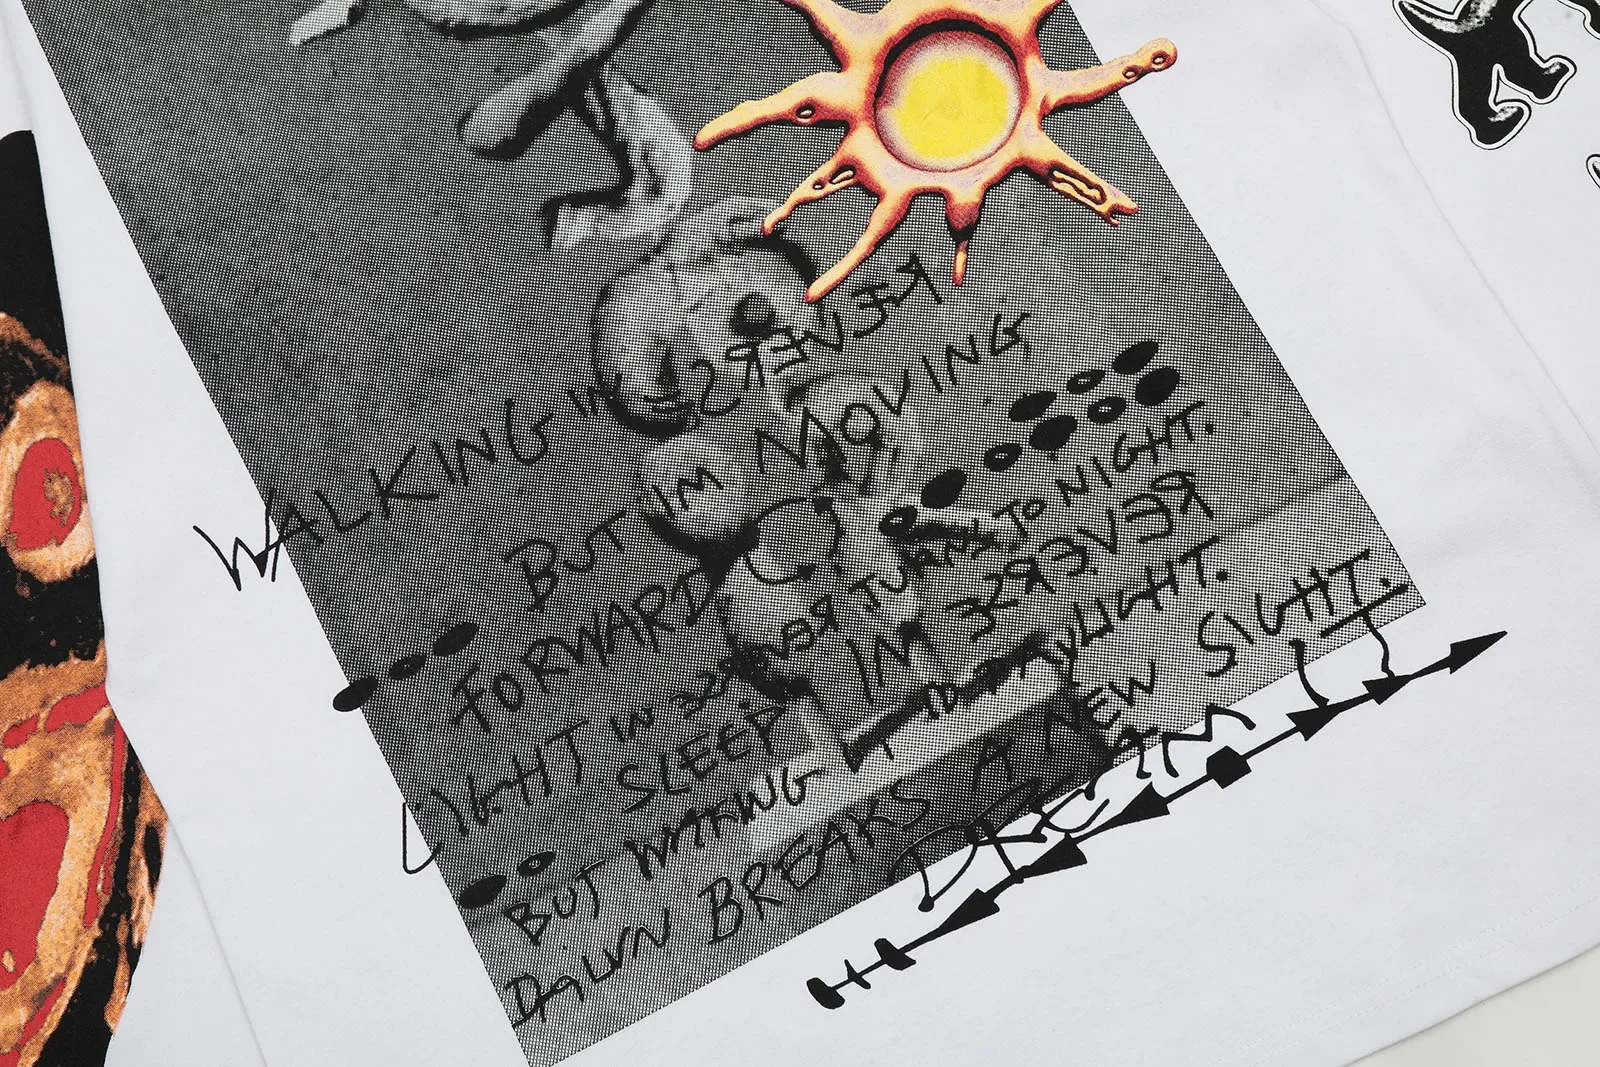 WALKING IN REVERSE
BUT IM MOVING
FORWARD
LIGHT IN REAR TURNS TO NIGHT.
SLEEP IM REVERSE
BUT WAKING TO DAYLIGHT.
DAWN BREAKS A NEW SIGHT.
DREAM